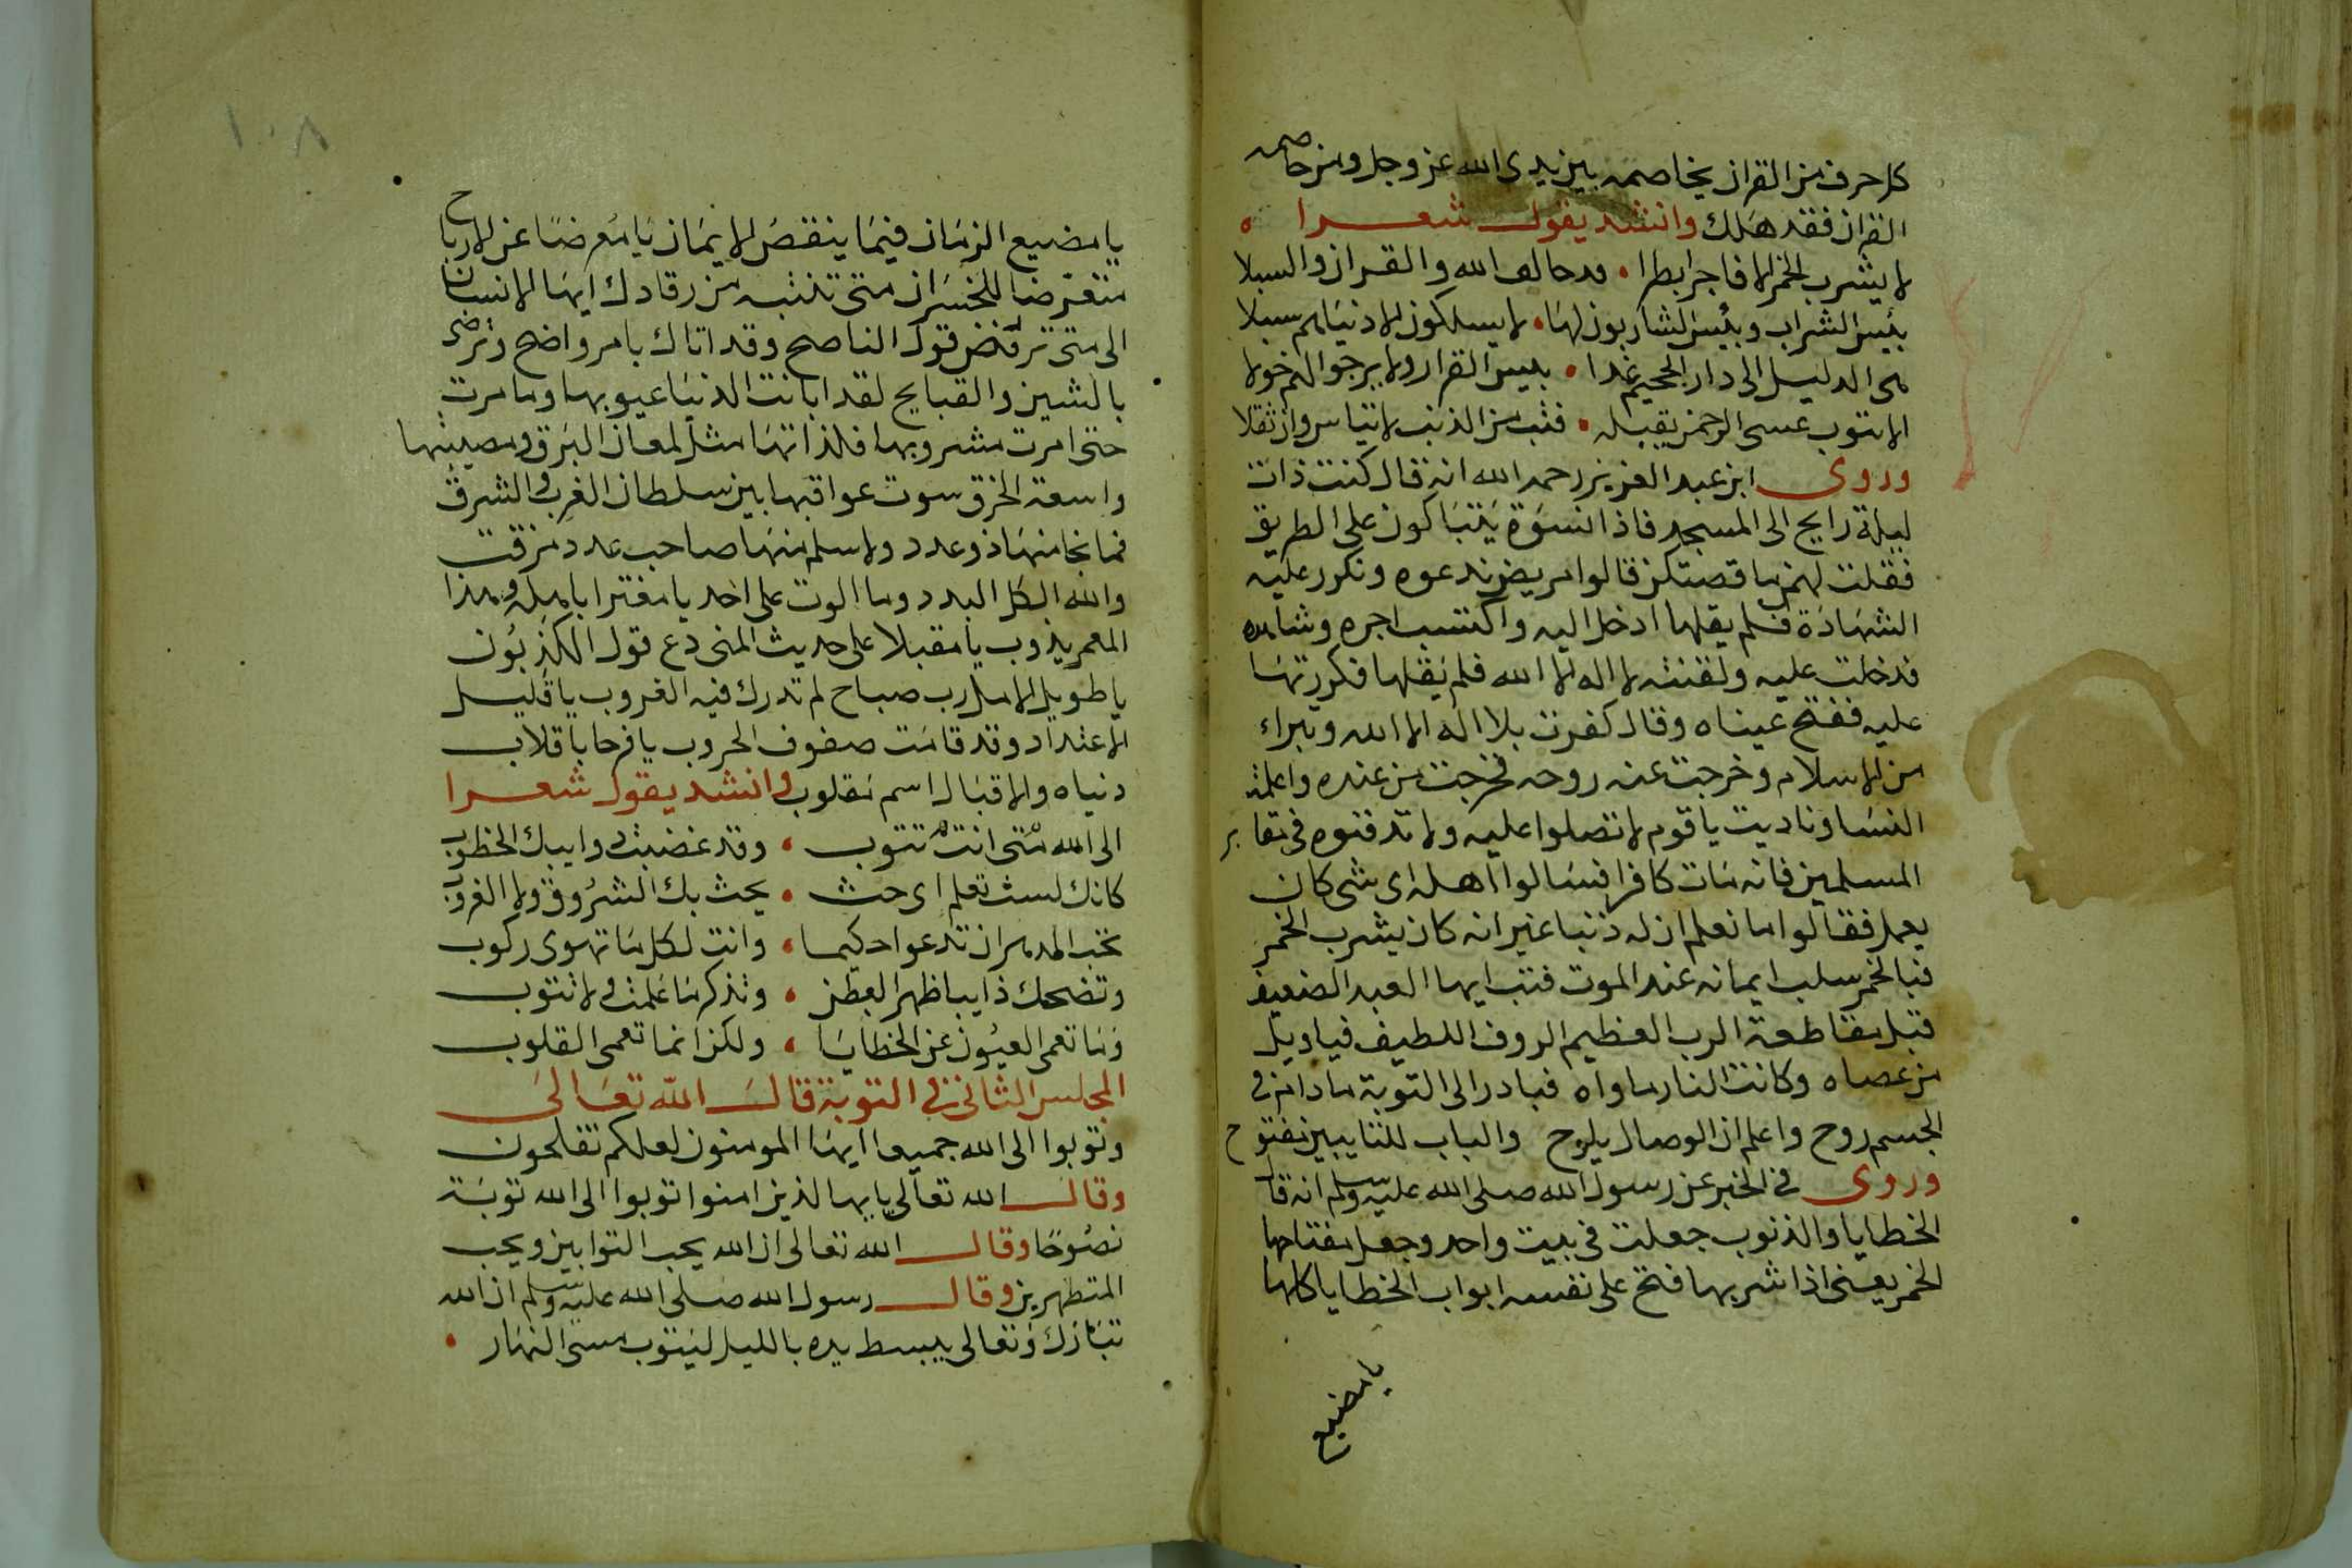 كل حرف من القران يخاصمه بين يدى الله عز وجل ومن خاصمه
القران فقد هلك وانشد يقول شعرا
لا يشرب الخمر الا فاجرا بطرا • قد خالف الله والقران والسبلا
بئيس الشراب وبئيس الشاربون لها • لا يسلكون الا دنياهم سبلا
هى الدليل الى دار الجحيم غدا • بييس القرار ولا يرجوا لهم خولا
الا يتوب عسى الرحمن يقبله • فتب من الذنب لا تياس وان ثقلا
وروى ابن عبد العزيز رحمه الله انه قال كنت ذات
ليلة رايح الى المسجد فاذا نسوة يتباكون على الطريق
فقلت لهن ما قصتكن قالوا مريض ندعوه ونكرر عليه
الشهادة فلم يقلها ادخل اليه واكتسب اجره وشاهده
فدخلت عليه ولقنته لا اله الا الله فلم يقلها فكررتها
عليه ففتح عيناه وقال كفرت بلا اله الا الله وتبراء
من الاسلام وخرجت عنه روحه فخرجت من عنده واعلمت
النسا وناديت يا قوم لا تصلوا عليه ولا تدفنوه فى مقابر
المسلمين فانه مات كافرا فسالوا اهله اى شى كان
يعمل فقالوا ما نعلم ان له ذنبا غير انه كان يشرب الخمر
فبالخمر سلب ايمانه عند الموت فتب ايها العبد الضعيف
قبل مقاطعة الرب العظيم الروف اللطيف فيا ويل
من عصاه وكانت النار ماواه فبادر الى التوبة ما دام فى
الجسم روح واعلم ان الوصال يلوح والباب للتايبين مفتوح
وروى فى الخبر عن رسول الله صلى الله عليه وسلم انه قال
الخطايا والذنوب جعلت فى بيت واحد وجعل مفتاحها
الخمر يعنى اذا شربها فتح على نفسه ابواب الخطايا كلها
يا مضيع
١٠٨
يا مضيع الزمان فيما ينقص الايمان يا معرضا عن الارباح
متعرضا للخسران متى تنتبه من رقادك ايها الانسان
الى متى ترفض قول الناصح وقد اتاك بامر واضح وترضى
بالشين والقبايح لقد ابانت الدنيا عيوبها وما مرت
حتى امرت مشروبها فلذاتها مثل لمعان البرق ومصيبتها
واسعة الخرق سوت عواقبها بين سلطان الغرب والشرق
فما نجا منها ذو عدد ولا سلم منها صاحب عدد مزقت
والله الكل البدد وما الوت على احد يا مفترا بامله وهذا
العمر يذوب يا مقبلا على حديث المنى دع قول الكذبون
يا طويل الامل رب صباح لم تدرك فيه الغروب يا قليل
الاعتداد وقد قامت صفوف الحروب يا فرحا باقلاب
دنياه والاقبال اسم مقلوب وانشد يقول شعرا
الى الله متى انت تتوب • وقد غضبت دوايبك الخطوب
كانك لست تعلم اى حث • يحث بك الشروق ولا الغروب
وانت لكل ما تهوى ركوب
وتضحك ذايبا ظهرا لبطن • وتذكر ما علمت ولا تتوب
وما تعمى العيون عن الخطايا • ولكن انما تعمى القلوب
المجلس الثانى فى التوبة قال الله تعالى
وتوبوا الى الله جميعا ايها المومنون لعلكم تفلحون
وقال الله تعالى يايها الذين امنوا توبوا الى الله توبة
نصوحا وقال الله تعالى ان الله يحب التوابين ويحب
المتطهرين وقال رسول الله صلى الله عليه وسلم ان الله
تبارك وتعالى يبسط يده بالليل ليتوب مسى النهار •